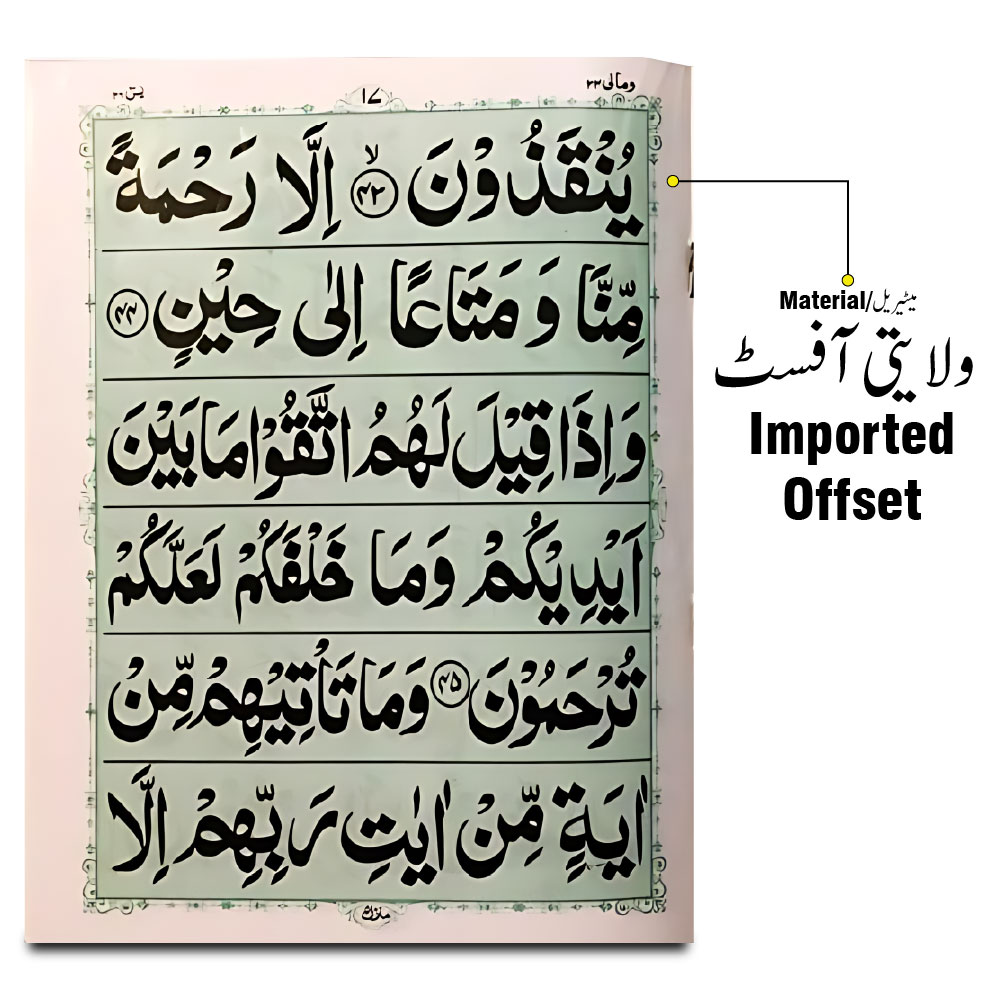 ومالی ۲۳
۱۷
یٰسٓ ۳۶
یُنْقَذُوْنَ ﴿۴۳﴾ۙ اِلَّا رَحْمَةً
مِّنَّا وَ مَتَاعًا اِلٰی حِیْنٍ ﴿۴۴﴾
وَاِذَا قِیْلَ لَهُمُ اتَّقُوْا مَا بَیْنَ
اَیْدِیْكُمْ وَمَا خَلْفَكُمْ لَعَلَّكُمْ
تُرْحَمُوْنَ ﴿۴۵﴾ وَمَا تَاْتِیْهِمْ مِّنْ
اٰیَةٍ مِّنْ اٰیٰتِ رَبِّهِمْ اِلَّا
Material/میٹیریل
ولایتی آفسٹ
Imported
Offset